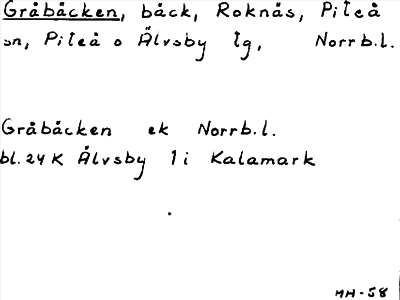 Gråbäcken, bäck, Roknäs, Piteå
sn, Piteå o Älvsby tg, Norrb.l.
Gråbäcken ek Norrb.l.
bl. 24 K Älvsby 1 i Kalamark
MH-58